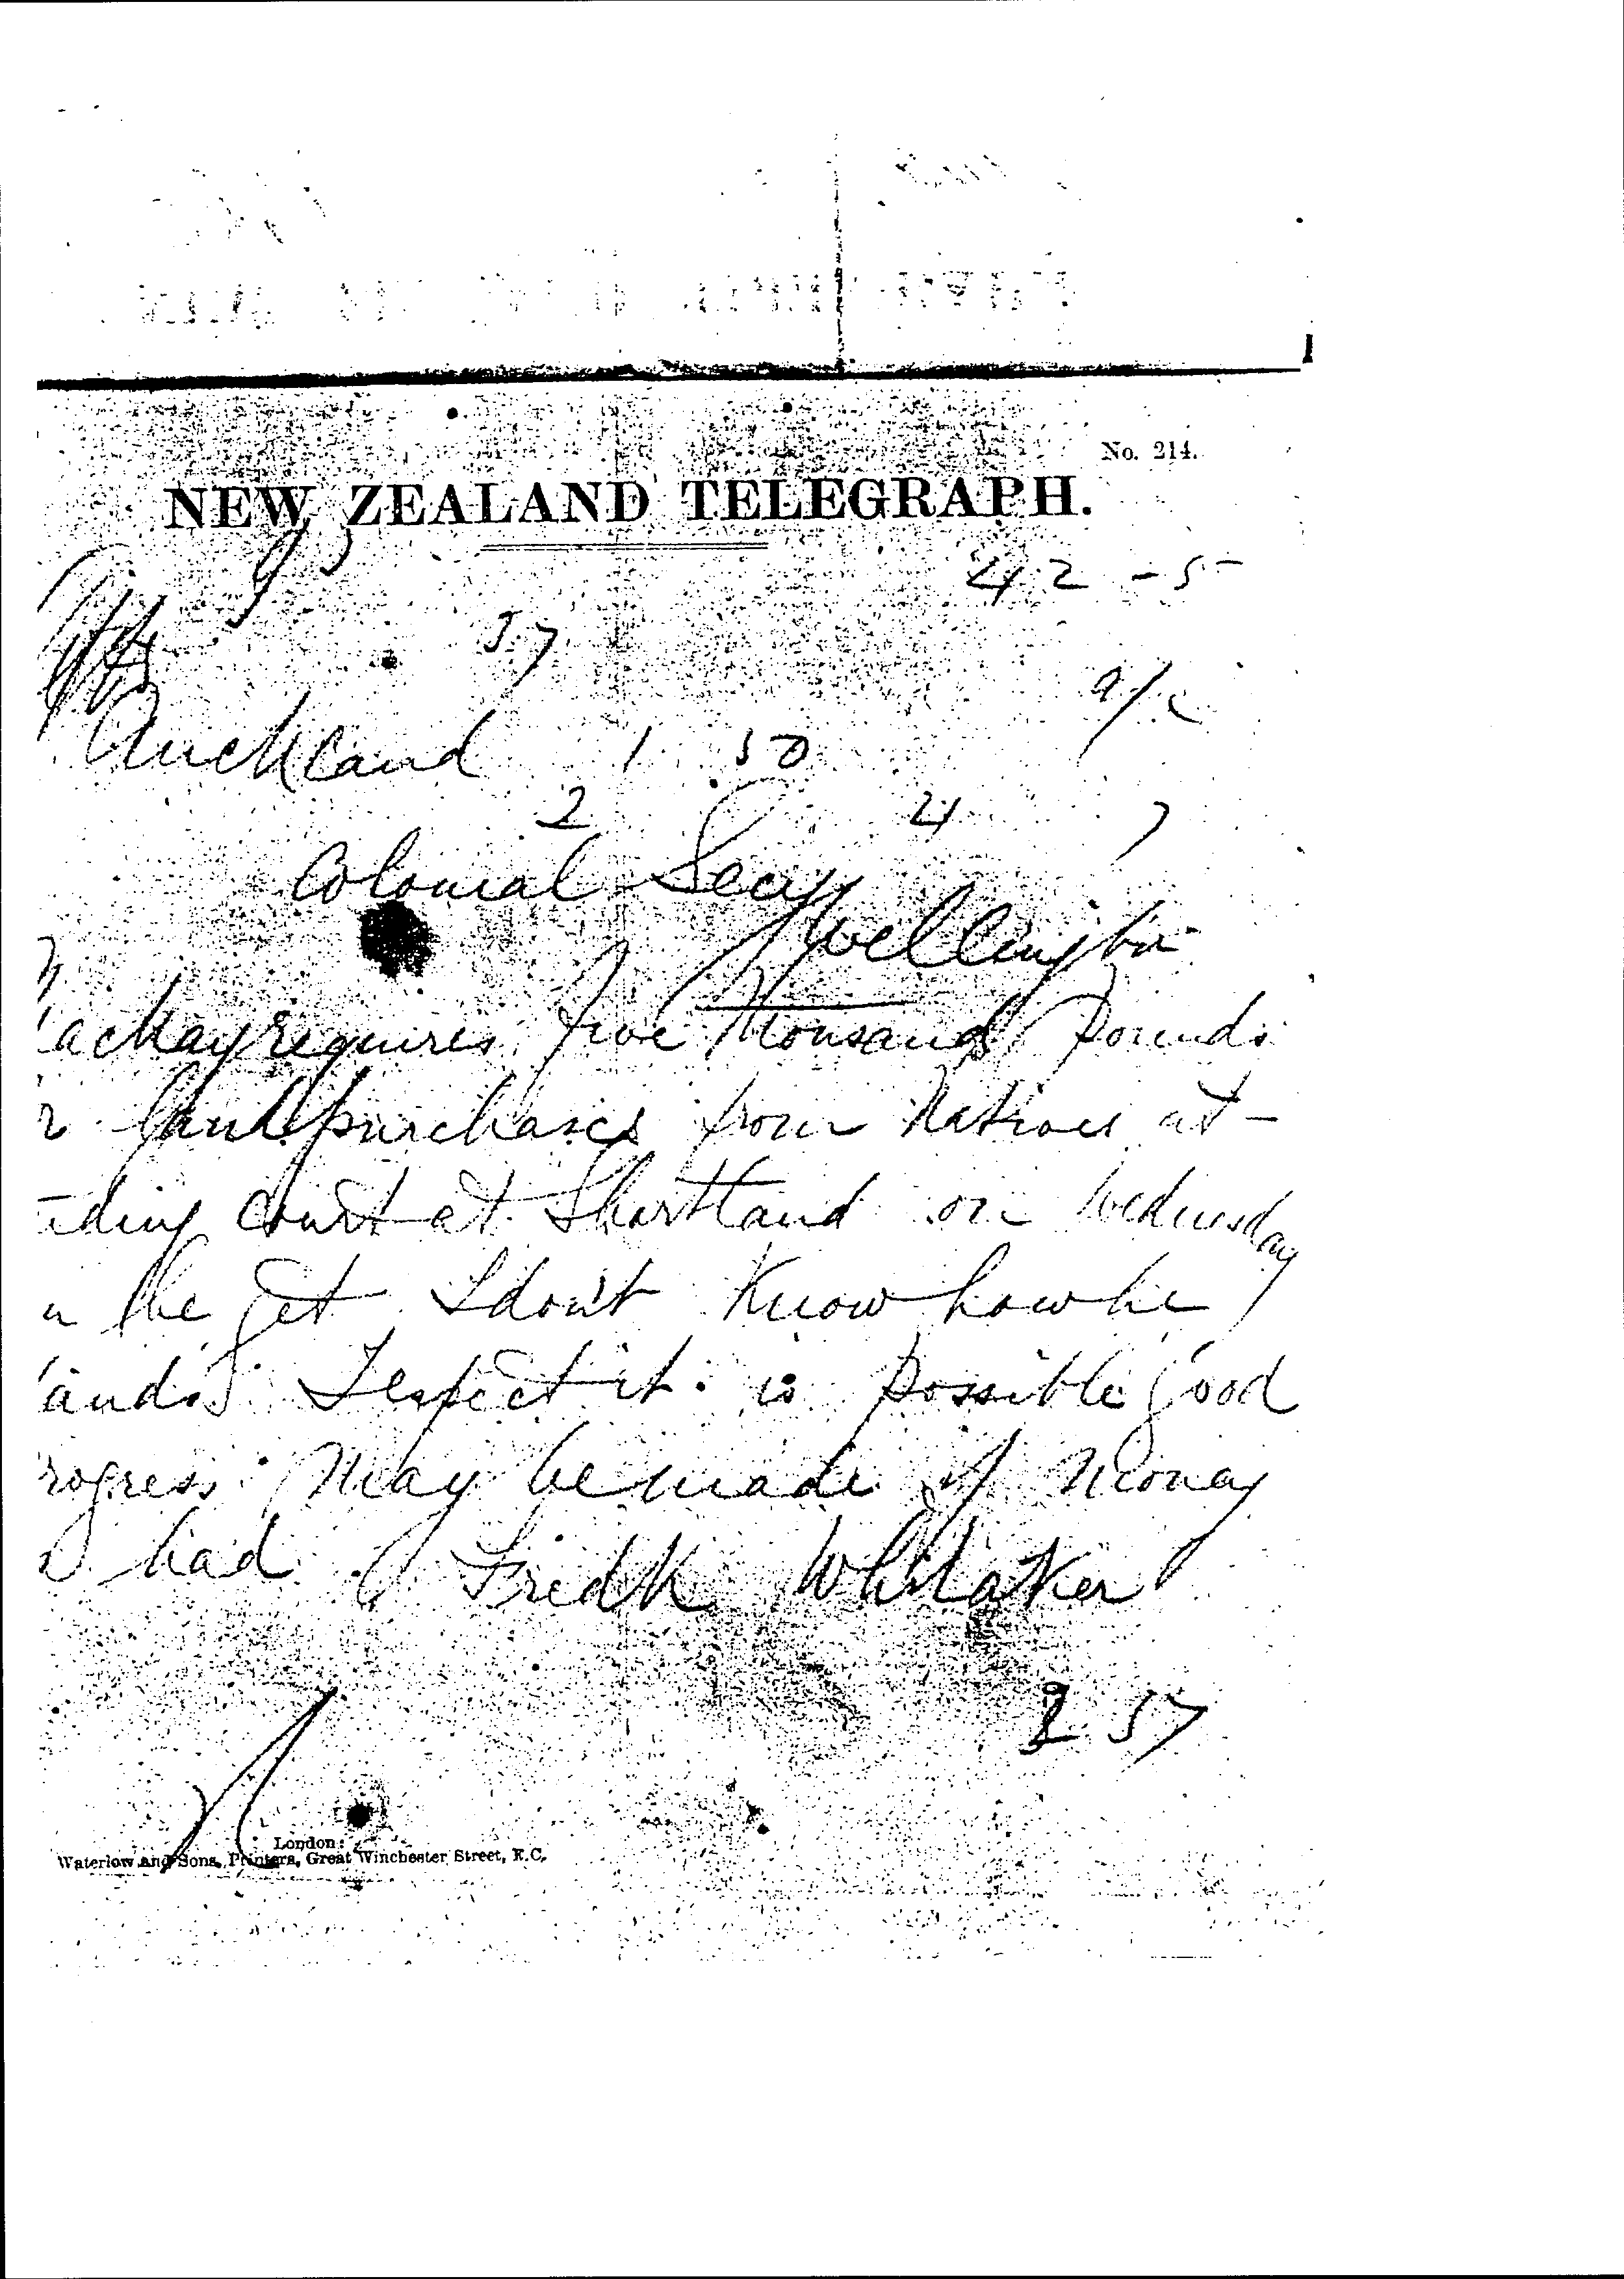 No. 214.
NEW ZEALAND TELEGRAPH.
42 - 5
57
a/c
Auckland 1 50
2 4 7
Colonial Secy
Wellington
ackay requires five thousand pounds
r land purchases from Natives at-
nding Court at Shortland on Wednesday
n be get I dont know how he
ands respect it is possible good
rogress may be made if money
had Fredk Whitaker
2 57
London:
Waterlow and Sons, Printers, Great Winchester Street, E.C.